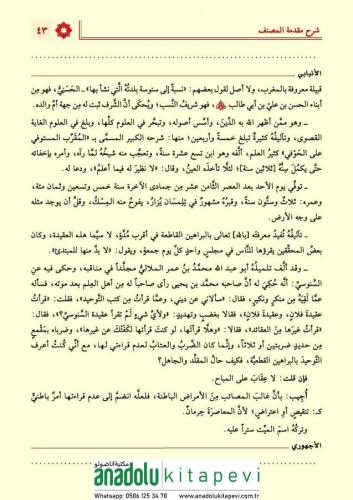 شرح مقدمة المصنف
٤٣
الأنبابي
قبيلة معروفة بالمغرب، ولا أصل لقول بعضهم: «نسبةً إلى سنوسة بلدته التي نشأ بها» ـ الحَسَنِيُّ، فهو مِن
أبناء الحسن بن عليّ بن أبي طالب، فهو شريفُ النَّسب؛ ويُحكَى أنَّ الشَّرف ثبت له من جهة أمِّ والده.
ـ وهو ممَّن أظهر الله به الدِّينَ، وأسَّس أصوله، وتبحَّر في العلوم كلِّها، وبلغ في العلوم الغاية
القصوى، وتآليفُهُ كثيرةٌ تبلغ خمسةً وأربعين؛ منها: شرحه الكبير المسمَّى بـ «المُقرَّب المستوفي
على الحَوْفي» كثيرُ العلم، ألَّفه وهو ابن تسع عشرة سنةً، وتعجَّب منه شيخُهُ لمَّا رآه، وأمره بإخفائه
حتَّى يكمُلَ سِنُّهُ [ثلاثين سنةً]؛ لئلَّا تأخذه العينُ، وقال: «لا نظيرَ له فيما أعلم»، ودعا له.
ـ توفِّي يومَ الأحد بعد العصر الثَّامن عشر مِن جمادى الآخرة سنة خمس وتسعين وثمان مئة،
وعمره: ثلاثٌ وستُّون سنةً، وقبرُهُ مشهورٌ في تِلِمسان يُزارُ، يفوح منه المِسكُ، وقلَّ أن يوجد مثله
على وجه الأرض.
ـ تآليفُهُ تُفيدُ معرفتَه [بالله] تعالى بالبراهين القاطعة في أقرب مُدَّةٍ، لا سيَّما هذه العقيدة، وكان
بعضُ المحقِّقين يقرؤها للنَّاس في مجلسٍ واحدٍ كلَّ يوم جمعةٍ، ويقول: «لا بدَّ منها للمبتدئ».
ـ وقد ألَّف تلميذُهُ أبو عبد الله محمَّدُ بنُ عمر الملاليُّ مجلَّداً في مناقبه، وحكى فيه عن
السَّنوسيِّ: أنَّه حُكِيَ له أنَّ صاحبه محمَّد بن يحيى رأى صاحباً له مِن أهل العلم بعد موته، فسأله
عمَّا لَقِيَهُ مِن منكرٍ ونكيرٍ، فقال: «سألاني عن ديني، وعمَّا قرأتُ مِن كتب التَّوحيد»، فقلت: «قرأتُ
عقيدةَ فلانٍ، وعقيدةَ فلانٍ»، فقالا بغضبٍ وتهديدٍ: «ولأيِّ شيءٍ لم تَقرأ عقيدةَ السَّنوسيِّ؟»، فقال:
«قرأتُ غيرَها مِن العقائد»، فقالا: «وهلَّا قرأتَها، لو كنتَ قرأتَها لكَفَتْكَ عن غيرها»، وضرباه بمِقْمعٍ
مِن حديدٍ ضربتين أو ثلاثاً، وإنَّما كان الضَّربُ والعتابُ لعدم قراءتي لها، مع أنِّي كُنتُ أعرف
التَّوحيدَ بالبراهين القطعيَّة، فكيف حالُ المقلِّد والجاهل؟
فإن قلت: لا عِقابَ على المباح.
أُجيب: بأنَّ غالبَ المصائب مِن الأمراض الباطنة، فلعلَّه انضمَّ إلى عدم قراءتها أمرٌ باطنيٌّ
كـ: تنقيصٍ أو اعتراضٍ؛ لأنَّ المعاصرة حرمان.
وتركُهُ اسمَ الميِّت ستراً عليه.
الأجهوري
مكتبة اناضولو
anadolu kitapevi
Whatsapp : 0506 125 34 70
www.anadolukitapevi.com.tr